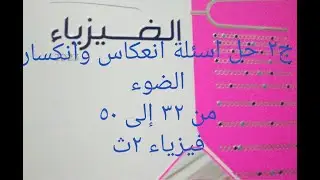 الفيزياء
ج٢ .حل اسئلة انعكاس وانكسار
الضوء
من ٣٢ إلى ٥٠
فيزياء ٢ث